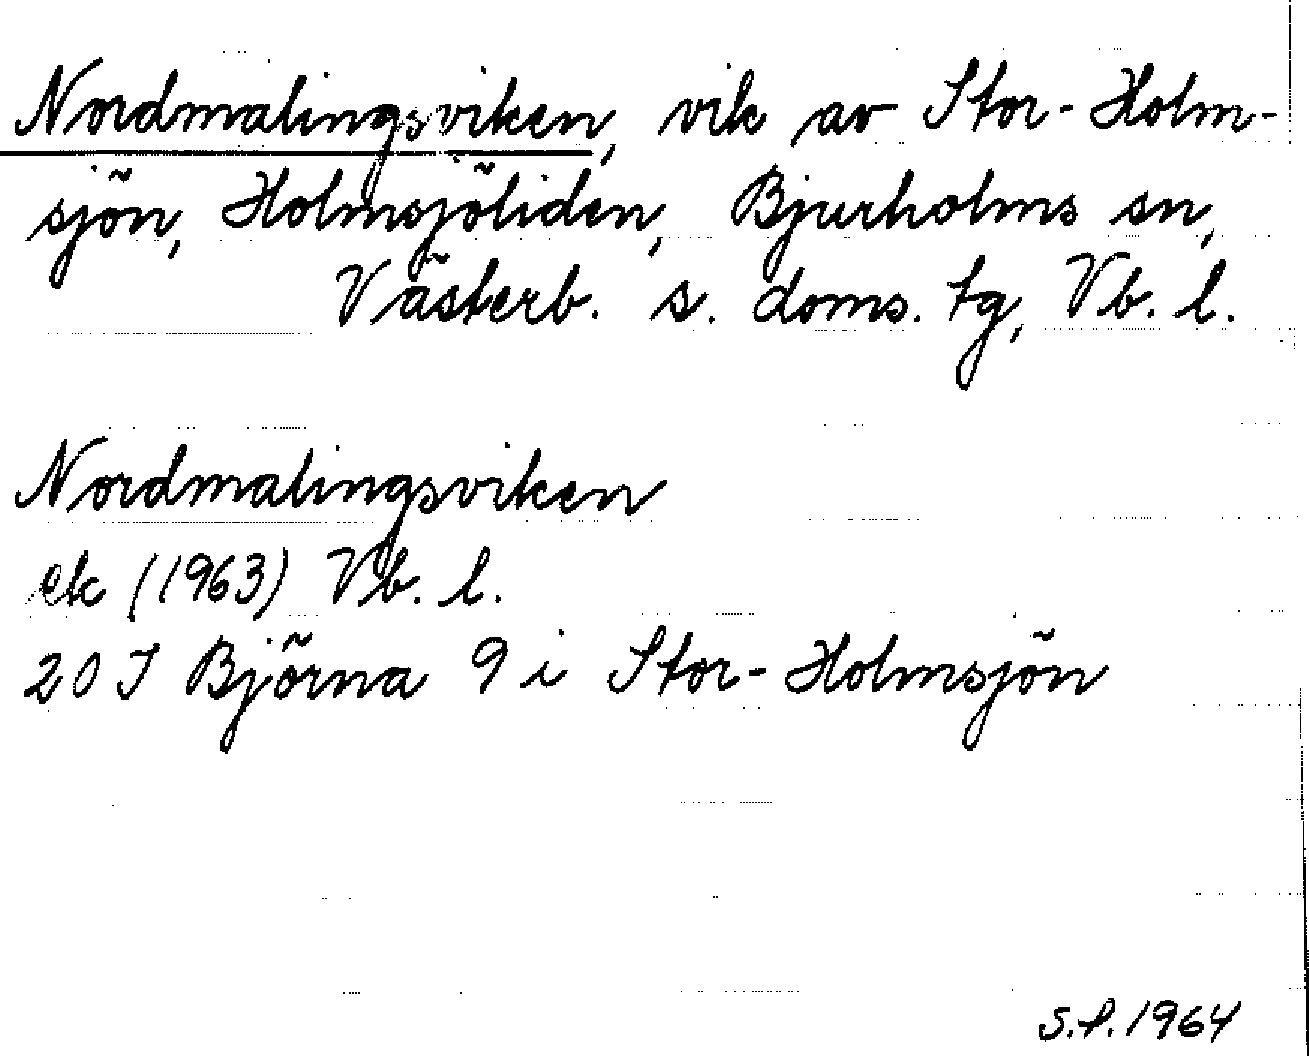 Nordmalingsviken, vik av Stor-Holm-
sjön, Holmsjöliden, Bjurholms sn,
Västerb. s. doms. tg, Vb. l.
Nordmalingsviken
ek (1963) Vb. l.
20 J Björna 9 i Stor-Holmsjön
S.P. 1964